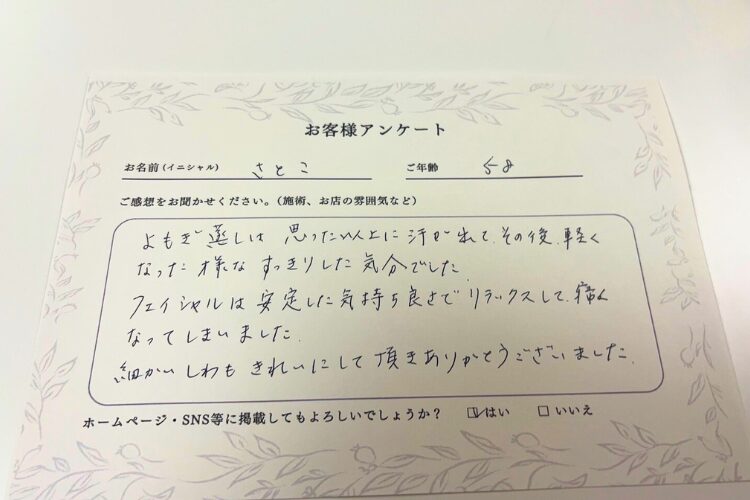 お客様アンケート
お名前(イニシャル) さとこ ご年齢 58
ご感想をお聞かせください。(施術、お店の雰囲気など)
よもぎ蒸しは 思った以上に汗が出て、その後、軽く
なった様な すっきりした気分でした。
フェイシャルは安定した気持ち良さでリラックスして、
なってしまいました。
細かいしわも きれいにして頂きありがとうございました。
ホームページ・SNS等に掲載してもよろしいでしょうか? ☑はい □いいえ